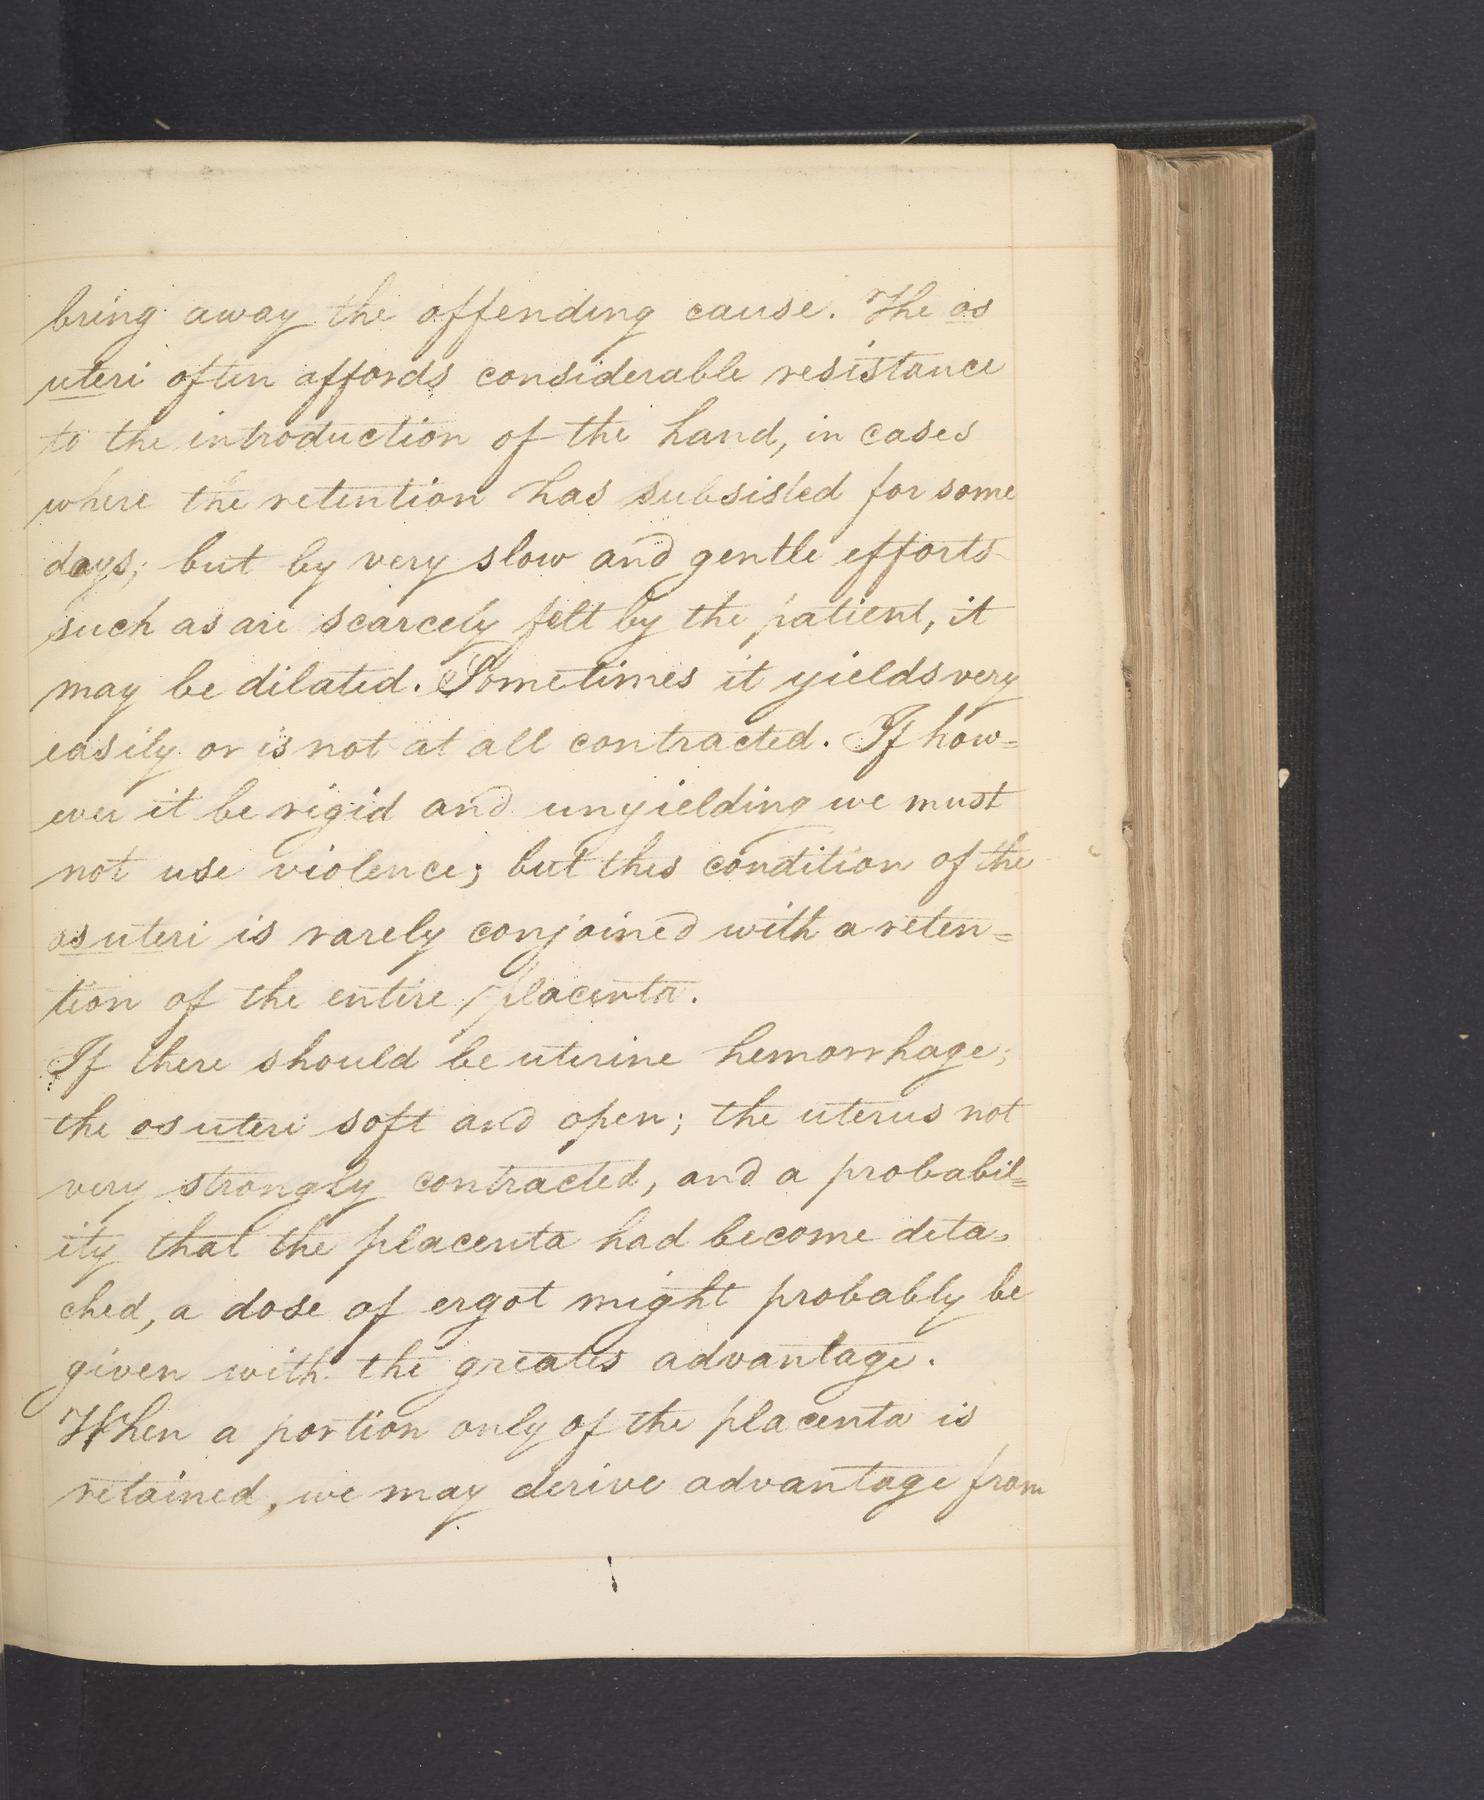 bring away the offending cause. The os
uteri often affords considerable resistance
to the introduction of the hand, in cases
where the retention has subsisted for some
days; but by very slow and gentle efforts
such as are scarcely felt by the patient, it
may be dilated. Sometimes it yields very
easily or is not at all contracted. If how=
ever it be rigid and unyielding we must
not use violence; but this condition of the
os uteri is rarely conjoined with a reten=
tion of the entire placenta.
If there should be uterine hemorrhage;
the os uteri soft and open; the uterus not
very strongly contracted, and a probabil=
ity that the placenta had become deta=
ched, a dose of ergot might probably be
given with the greates advantage.
When a portion only of the placenta is
retained, we may derive advantage from